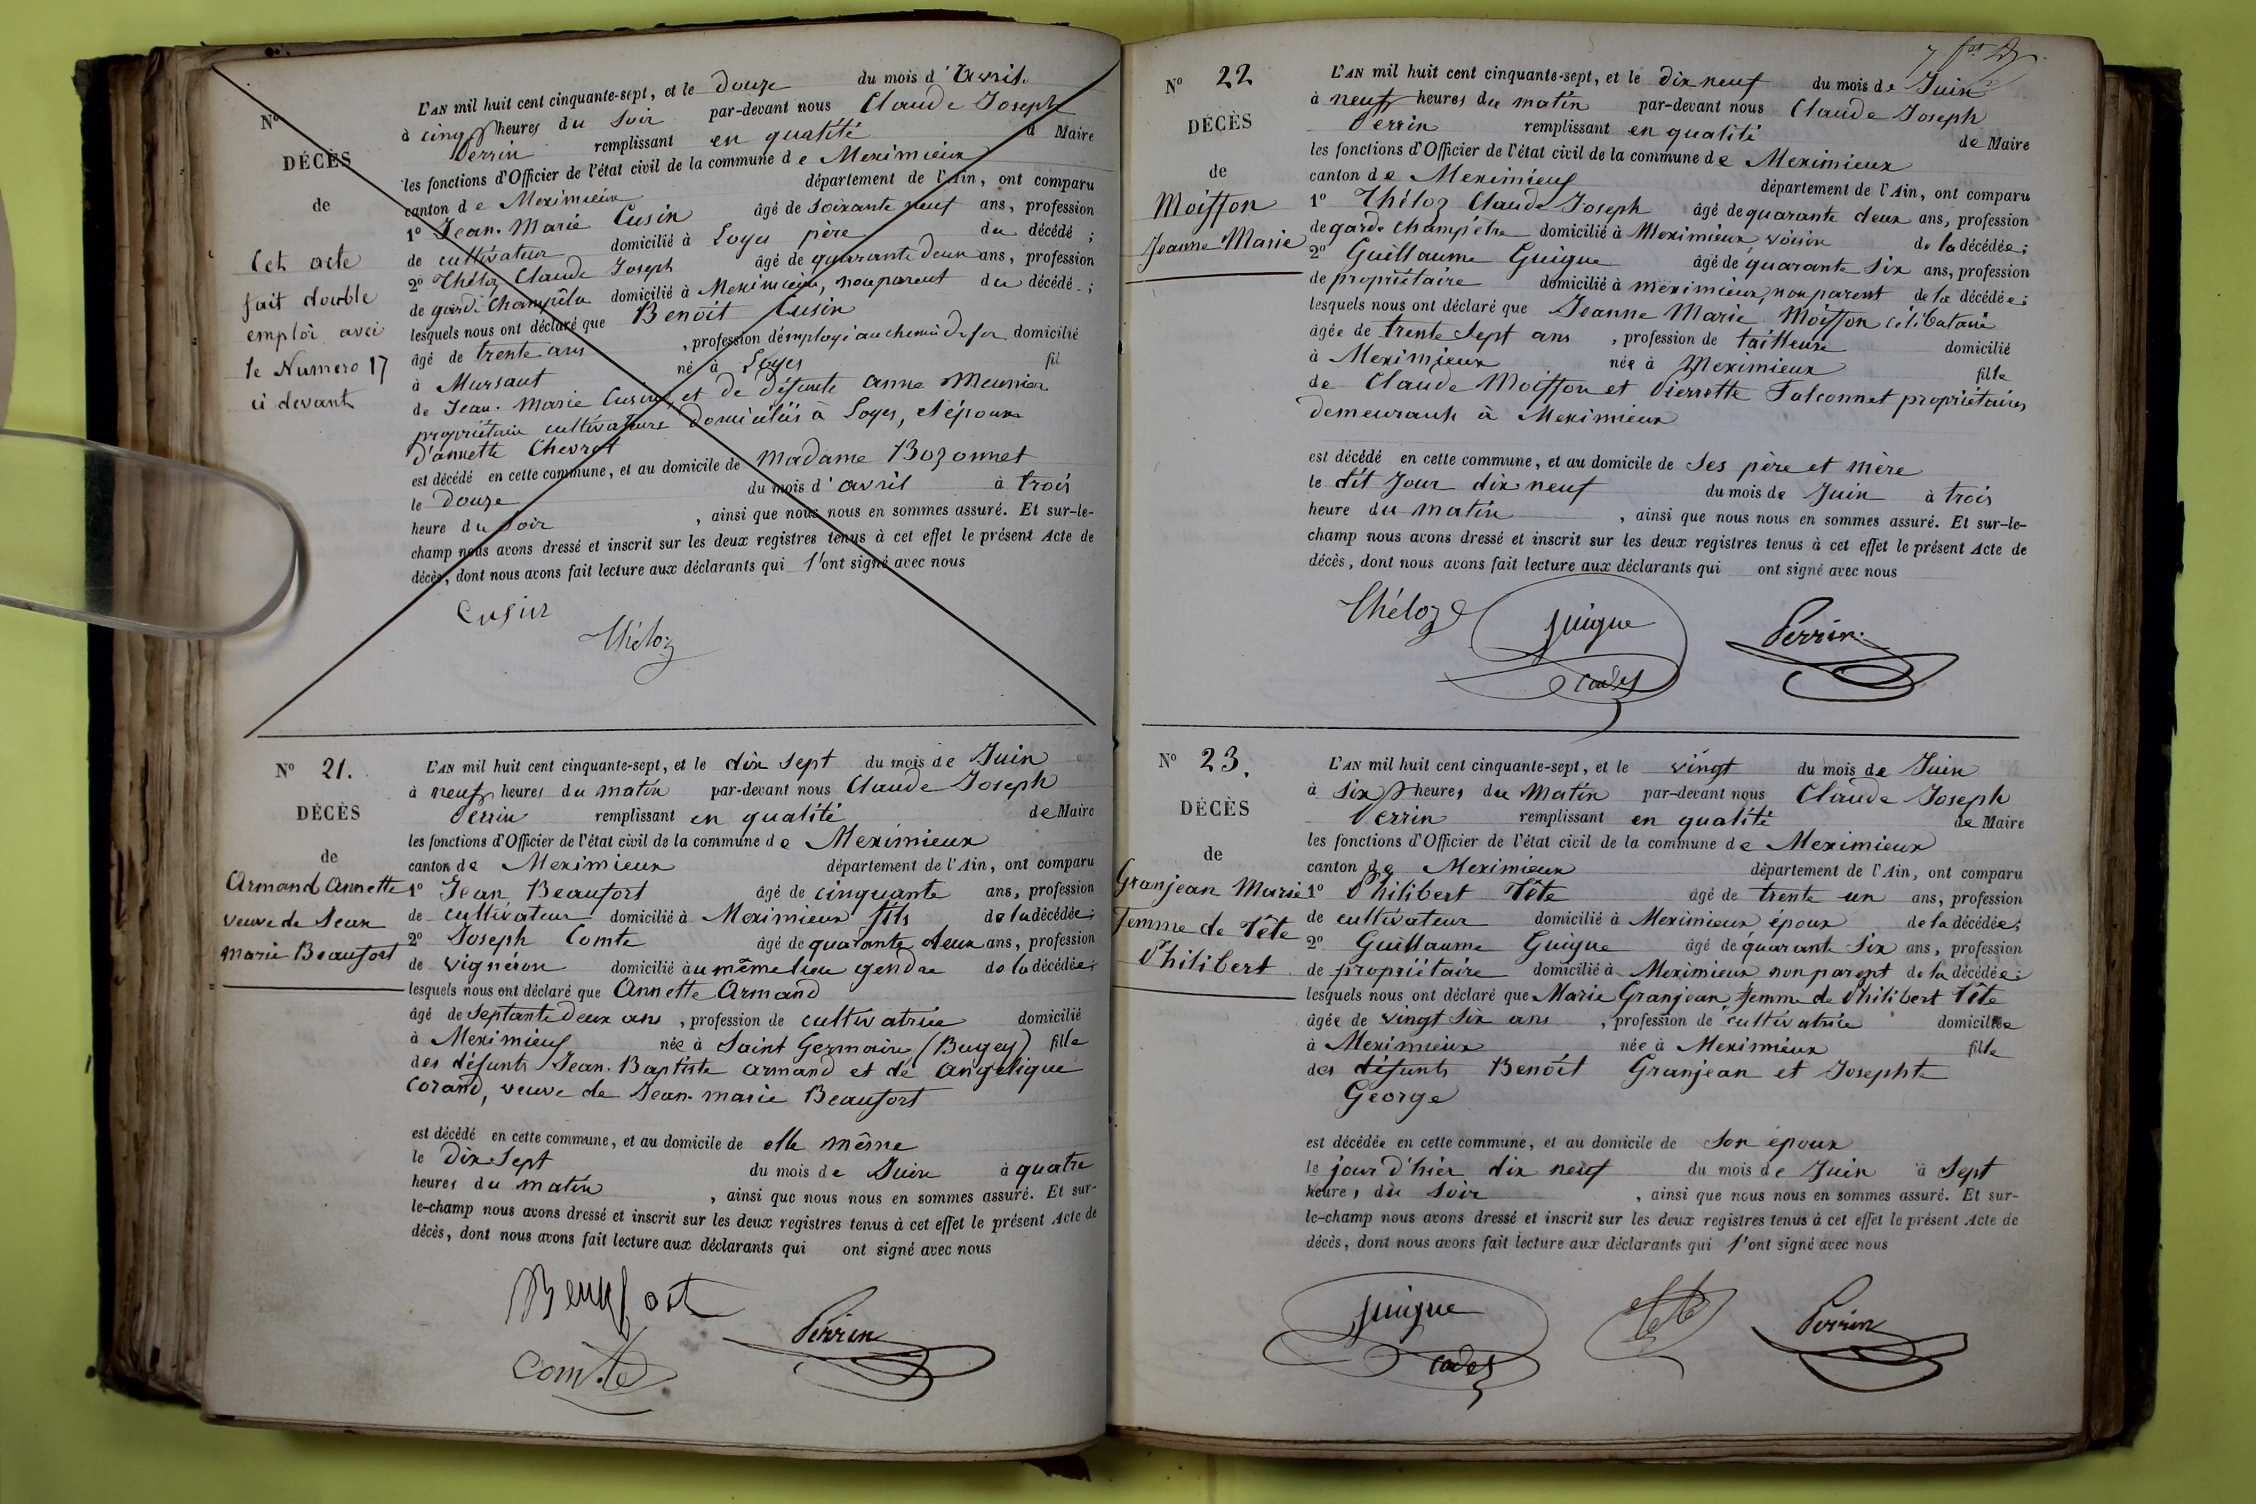 No
DÉCÈS
de
Cet acte
fait double
emploi avec
le Numero 17
ci devant
L'AN mil huit cent cinquante-sept, et le douze du mois d'Avril
à cinq heures du Soir par-devant nous Claude Joseph
Perrin remplissant en qualité d Maire
les fonctions d'Officier de l'état civil de la commune de Meximieux
canton de Meximieux département de l'Ain, ont comparu
1o Jean-Marie Cusin âgé de soixante neuf ans, profession
de cultivateur domicilié à Loyes père du décédé ;
2o Théloz Claude Joseph âgé de quarante deux ans, profession
de garde Champêtre domicilié à Meximieux, non parent du décédé ;
lesquels nous ont déclaré que Benoit Cusin
âgé de trente ans , profession d'employé au chemin de fer domicilié
à Mursaut né à Loyes fil
de Jean-Marie Cusin, et de défunte Anne Meunier
propriétaire cultivateurs domiciliés à Loyes, et époux
d'annette Chevrot
est décédé en cette commune, et au domicile de Madame Bozonnet
le Douze du mois d'avril à trois
heure du Soir , ainsi que nous nous en sommes assuré. Et sur-le-
champ nous avons dressé et inscrit sur les deux registres tenus à cet effet le présent Acte de
décès, dont nous avons fait lecture aux déclarants qui l'ont signé avec nous
Cusin
Théloz
No 21.
DÉCÈS
de
Armand Annette
veuve de Jean
Marie Beaufort
L'AN mil huit cent cinquante-sept, et le dix sept du mois de Juin
à neuf heures du matin par-devant nous Claude Joseph
Perrin remplissant en qualité de Maire
les fonctions d'Officier de l'état civil de la commune de Meximieux
canton de Meximieux département de l'Ain, ont comparu
1o Jean Beaufort âgé de cinquante ans, profession
de cultivateur domicilié à Meximieux fils de la décédée ;
2o Joseph Comte âgé de quarante deux ans, profession
de vigneron domicilié au même lieu gendre de la décédée ;
lesquels nous ont déclaré que Annette Armand
âgé de septante deux ans , profession de cultivatrice domicilié
à Meximieux née à Saint Germain (Bugey) fille
des défunts Jean-Baptiste Armand et de Angélique
Corand, veuve de Jean-marie Beaufort
est décédé en cette commune, et au domicile de elle même
le Dix Sept du mois de Juin à quatre
heures du matin , ainsi que nous nous en sommes assuré. Et sur-
le-champ nous avons dressé et inscrit sur les deux registres tenus à cet effet le présent Acte de
décès, dont nous avons fait lecture aux déclarants qui ont signé avec nous
Beaufort
Perrin
Comte
No 22
DÉCÈS
de
Moiffon
Jeanne Marie
L'AN mil huit cent cinquante-sept, et le dix neuf du mois de Juin
à neuf heures du matin par-devant nous Claude Joseph
Perrin remplissant en qualité de Maire
les fonctions d'Officier de l'état civil de la commune de Meximieux
canton de Meximieux département de l'Ain, ont comparu
1o Théloz Claude Joseph âgé de quarante deux ans, profession
de garde champêtre domicilié à Meximieux voisin de la décédée ;
2o Guillaume Guigue âgé de quarante six ans, profession
de propriétaire domicilié à meximieux, non parent de la décédée ;
lesquels nous ont déclaré que Jeanne Marie Moiffon célibataire
âgée de trente sept ans , profession de tailleuse domicilié
à Meximieux née à Meximieux fille
de Claude Moiffon et Pierrette Falconnet propriétaires
demeurants à Meximieux
est décédé en cette commune, et au domicile de Ses père et mère
le dit Jour dix neuf du mois de Juin à trois
heure du matin , ainsi que nous nous en sommes assuré. Et sur-le-
champ nous avons dressé et inscrit sur les deux registres tenus à cet effet le présent Acte de
décès, dont nous avons fait lecture aux déclarants qui ont signé avec nous
Théloz
guigue
cadet
Perrin
No 23.
DÉCÈS
de
Granjean Marie
Femme de Tête
Philibert
L'AN mil huit cent cinquante-sept, et le vingt du mois de Juin
à six heures du Matin par-devant nous Claude Joseph
Perrin remplissant en qualité de Maire
les fonctions d'Officier de l'état civil de la commune de Meximieux
canton de Meximieux département de l'Ain, ont comparu
1o Philibert Tête âgé de trente un ans, profession
de cultivateur domicilié à Meximieux époux de la décédée ;
2o Guillaume Guigue âgé de quarante six ans, profession
de propriétaire domicilié à Meximieux non parent de la décédée ;
lesquels nous ont déclaré que Marie Granjean, femme de Philibert Tête
âgée de vingt six ans , profession de cultivatrice domiciliée
à Meximieux née à Meximieux fille
des défunts Benoît Granjean et Josephte
George
est décédée en cette commune, et au domicile de Son époux
le jour d'hier dix neuf du mois de Juin à Sept
heures du Soir , ainsi que nous nous en sommes assuré. Et sur-
le-champ nous avons dressé et inscrit sur les deux registres tenus à cet effet le présent Acte de
décès, dont nous avons fait lecture aux déclarants qui l'ont signé avec nous
guigue
cadet
tête
Perrin